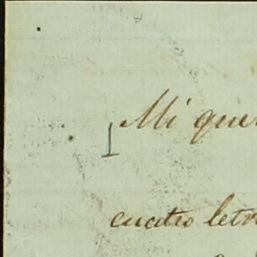 Mi que
cuatro letr